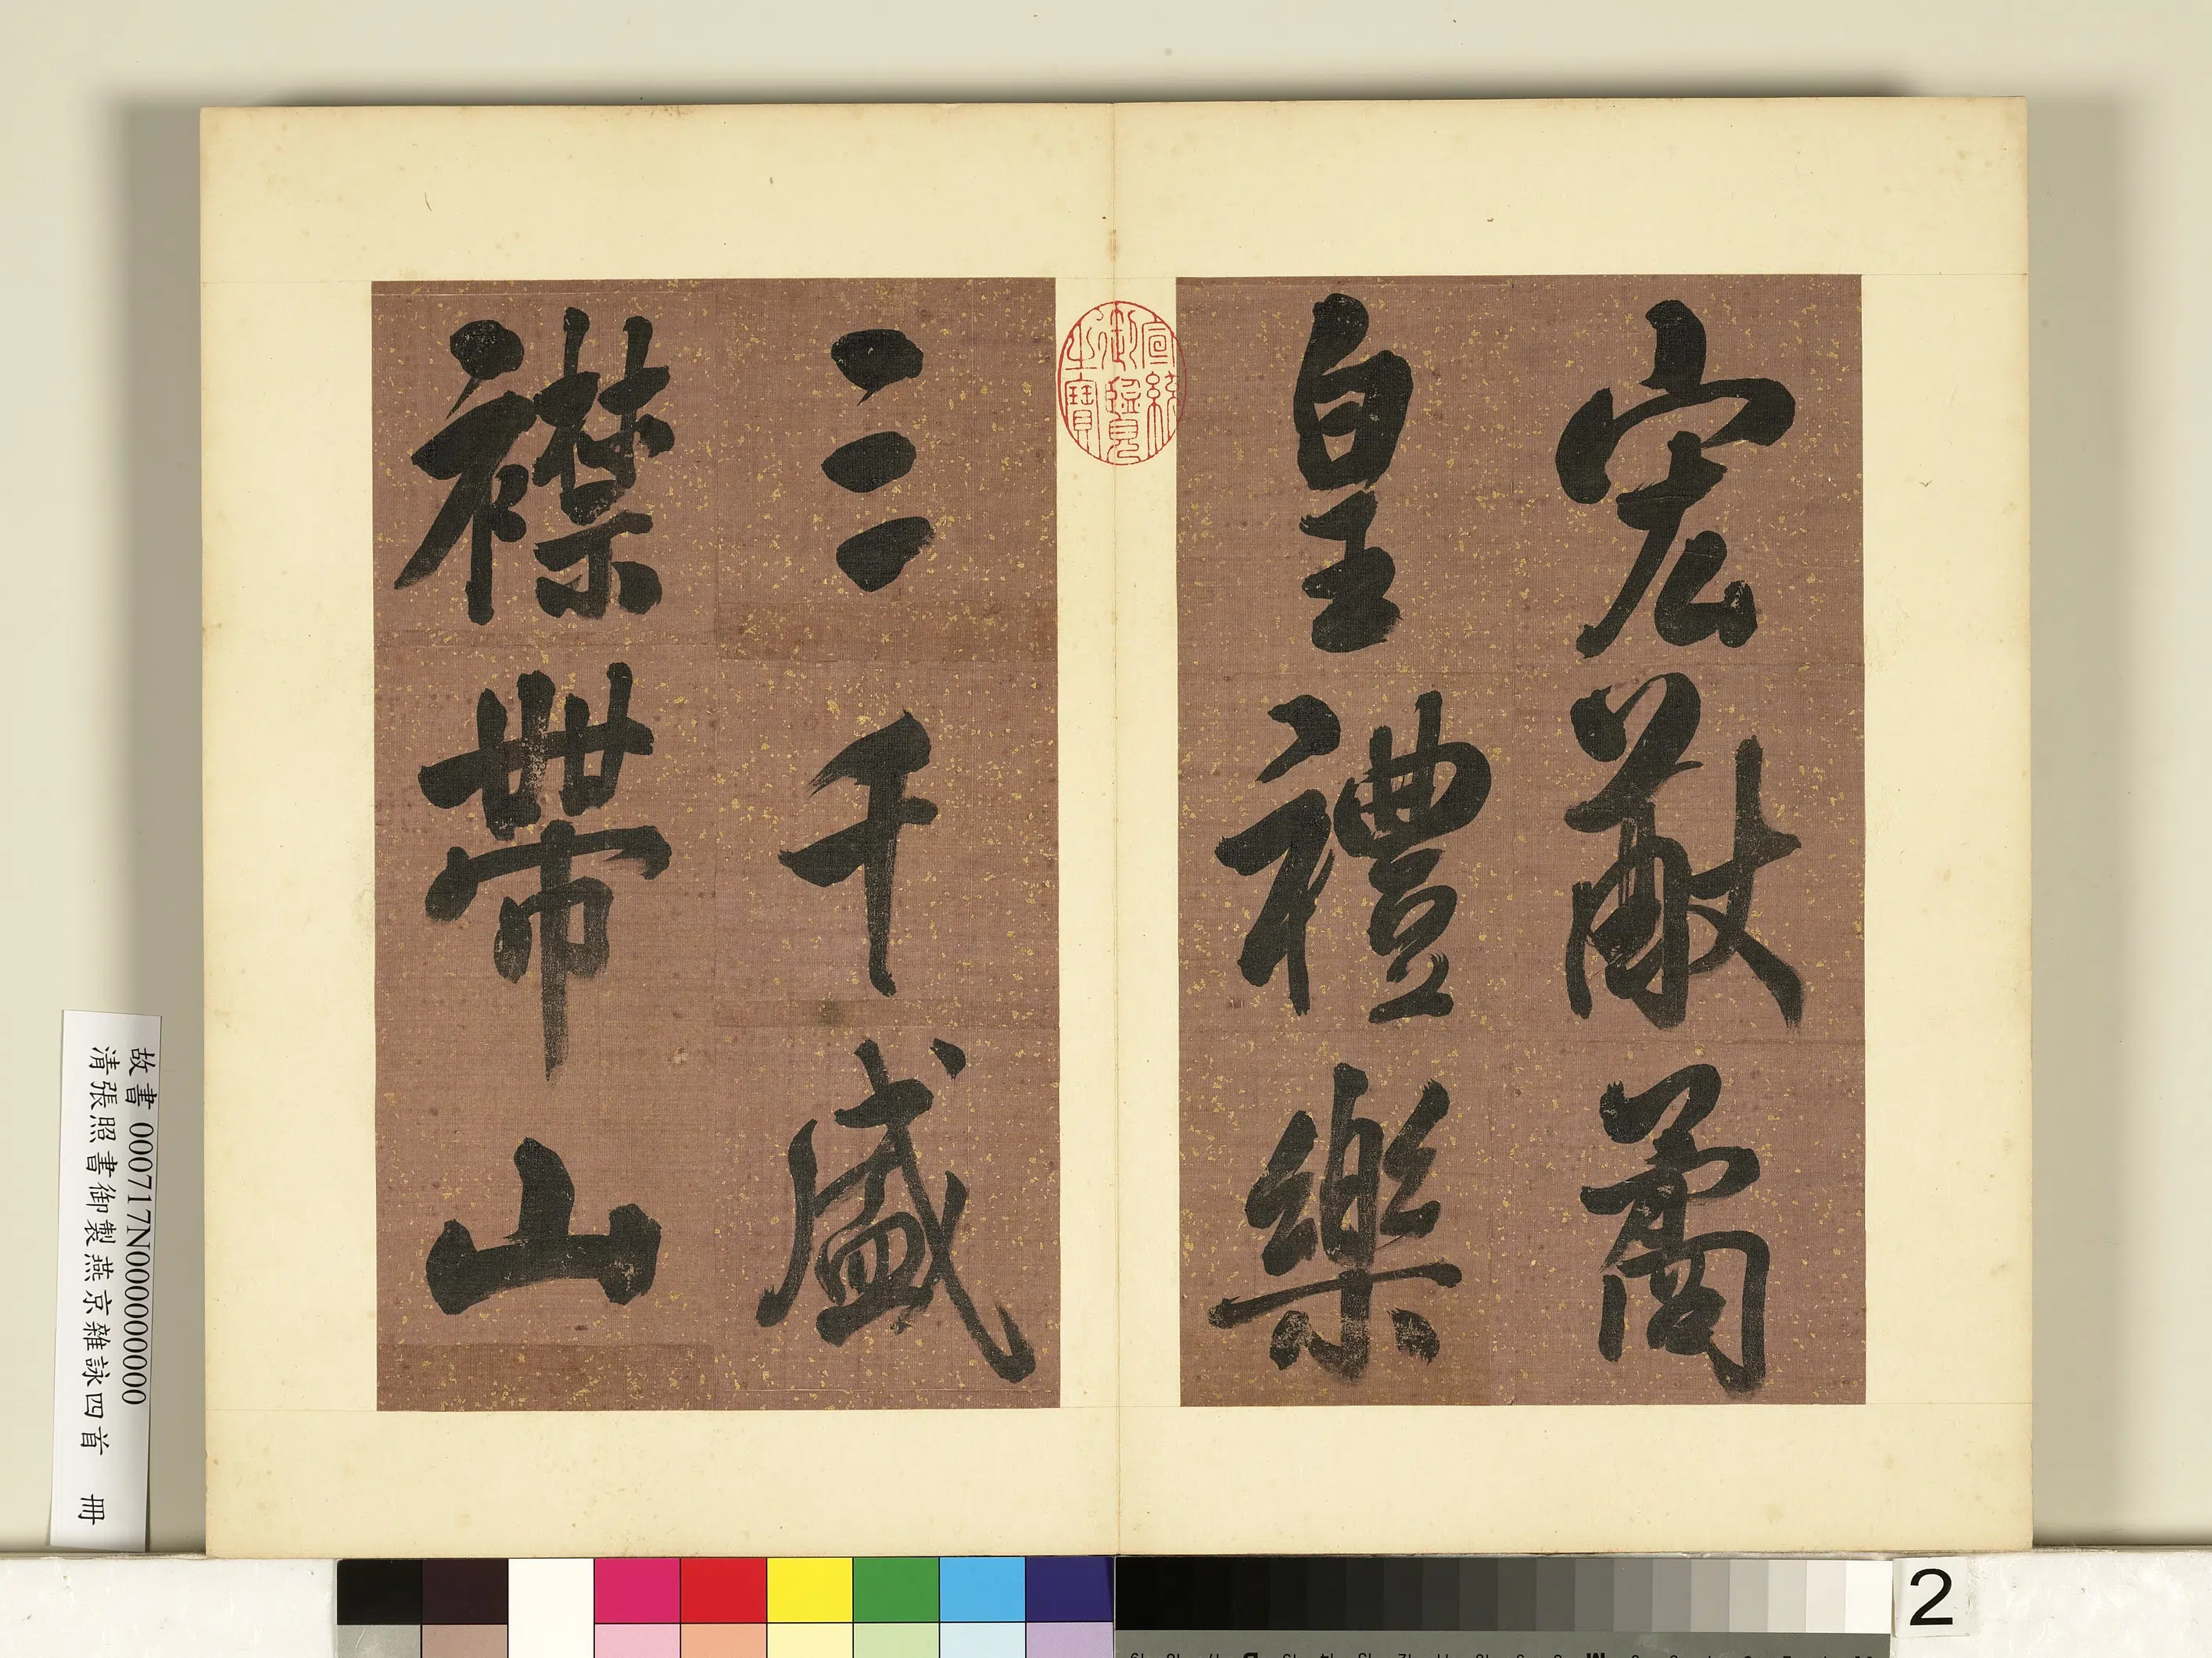 宏敞矞
皇禮樂
三千盛
襟帶山
宣統
御覽
之寶
故書 000717N000000000
清張照書御製燕京雜詠四首 冊
2